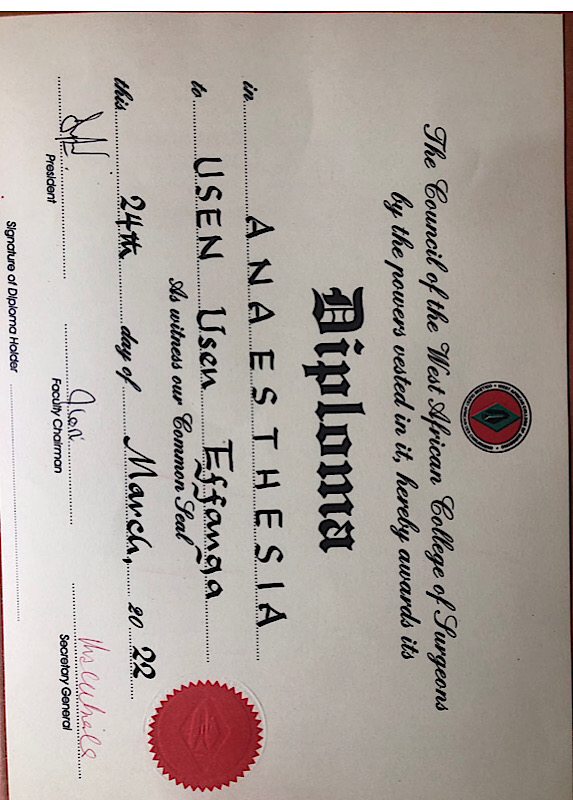 The Council of the West African College of Surgeons
by the powers vested in it, hereby awards its
Diploma
in ANAESTHESIA
to USEN Usen Effanga
As witness our Common Seal
this 24th day of March, 20 22
President
Faculty Chairman
Secretary General
Signature of Diploma Holder